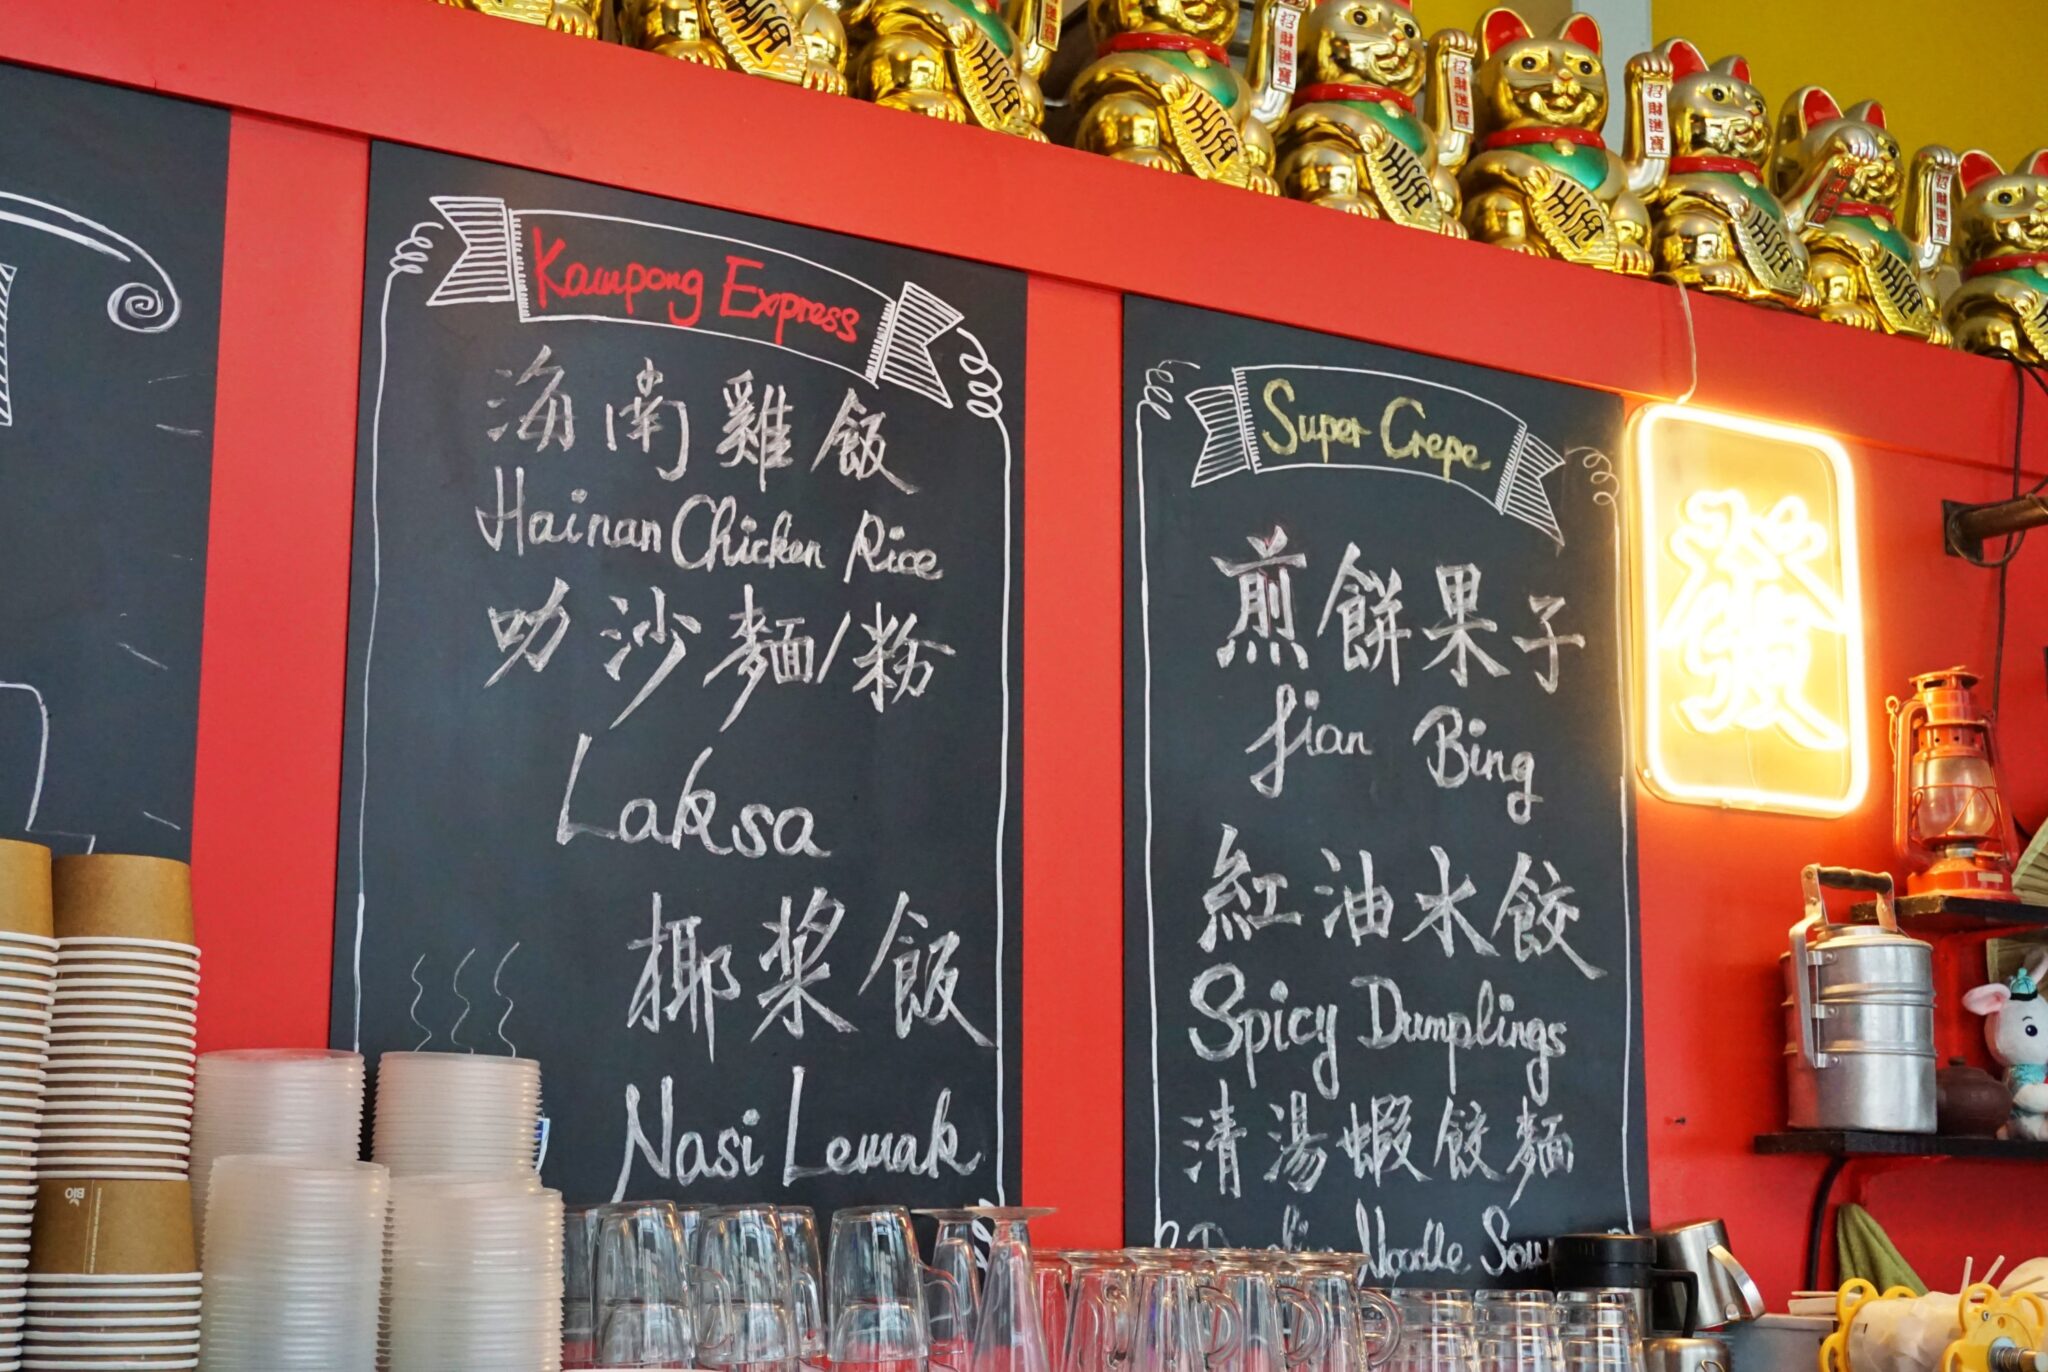 Kampong Express
海南雞飯
Hainan Chicken Rice
叻沙麵/粉
Laksa
椰漿飯
Nasi Lemak
Super Crepe
煎餅果子
Jian Bing
紅油水餃
Spicy Dumplings
清湯蝦餃麵
Noodle
發
招財進寶
招財進寶
招財進寶
招財進寶
招財進寶
BIO